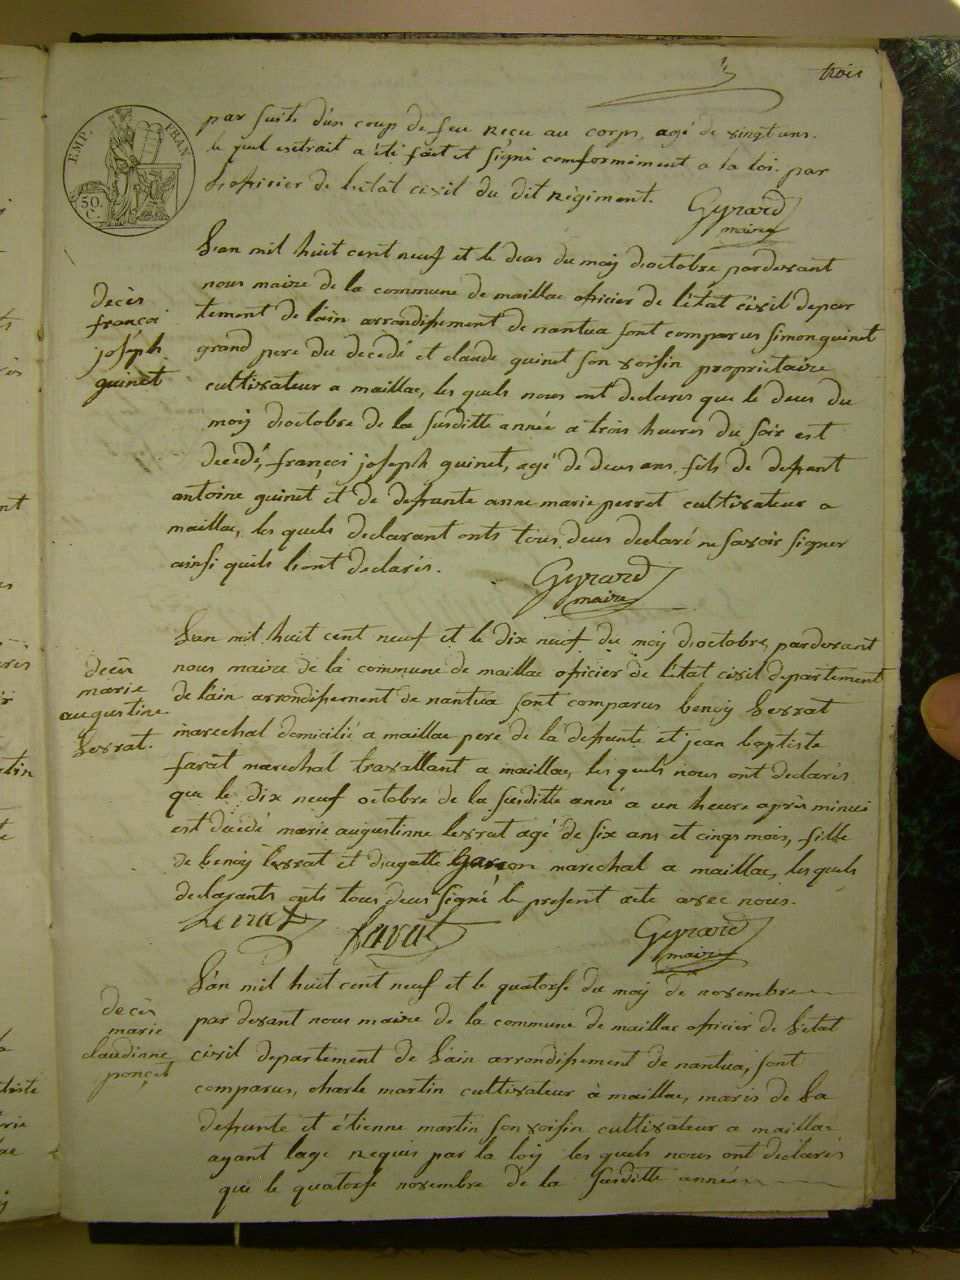 trois
EMP. FRAN
50.
C.
par suite d'un coup de feu reçu au corps, agé de vingt ans.
le quel extrait a été fait et signé comformément a la loi par
l'officier de l'etat civil du dit régiment.
Gyrard
maire
decès
françoi
joseph
guinet
L'an mil huit cent neuf et le deus du moy d'octobre pardevant
nous maire de la commune de maillac oficier de l'état civil depar
tement de l'ain arrondissement de nantua sont comparus simon guinet
grand pere du decedé et claude guinet son voisin propriétaire
cultivateur a maillac, les quels nous ont declarés que le deus du
moy d'octobre de la susditte année a trois heures du soir est
decedé, françoi joseph guinet, agé de deus ans fils de defunt
antoine guinet et de defunte anne marie perret cultivateur a
maillac, les quels declarant onts tous deus declaré ne savoir signer
ainsi quils l'ont declarés.
Gyrard
maire
decès
marie
augustine
Levrat.
L'an mil huit cent neuf et le dix neuf du moy d'octobre, pardevant
nous maire de la commune de maillac oficier de l'état civil departement
de l'ain arrondissement de nantua sont comparus benoy Levrat
marechal domicilié a maillac pere de la defunte et jean baptiste
farat marechal travallant a maillac, les quels nous ont declarés
que le dix neuf octobre de la susditte anné a un heure après minui
est decédé marie augustinne levrat agé de six ans et cinqs mois, fille
de benoy levrat et d'agatte garcon marechal a maillac, les quels
declarants onts tous deus signé le present acte avec nous.
Levrat
favat
Gyrard
maire
decès
marie
claudinne
ponçet
L'an mil huit cent neuf et le quatorse du moy de novembre
par devant nous maire de la commune de maillac oficier de l'etat
civil departement de l'ain arrondissement de nantua, sont
comparus, charle martin cultivateur à maillac, maris de la
defunte et étienne martin son voisin cultivateur a maillac
ayant l'age requis par la loy les quels nous ont déclarés
que le quatorse novembre de la susditte année